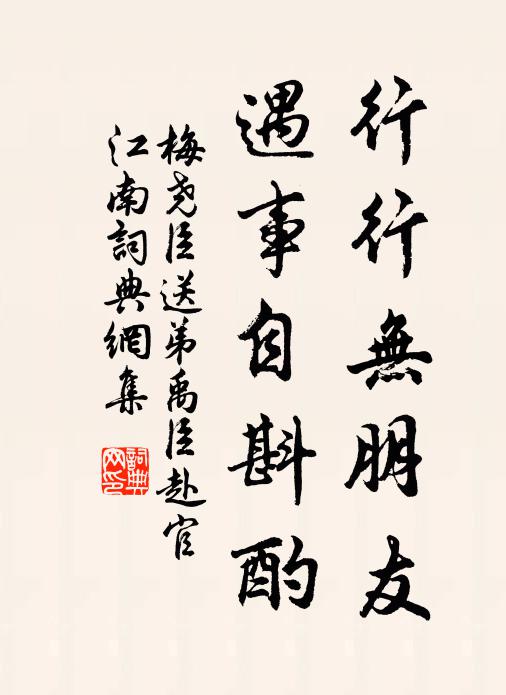 行行無朋友
遇事自斟酌
梅尧臣送弟禹臣赴官
江南詞典網集
詞典
网印